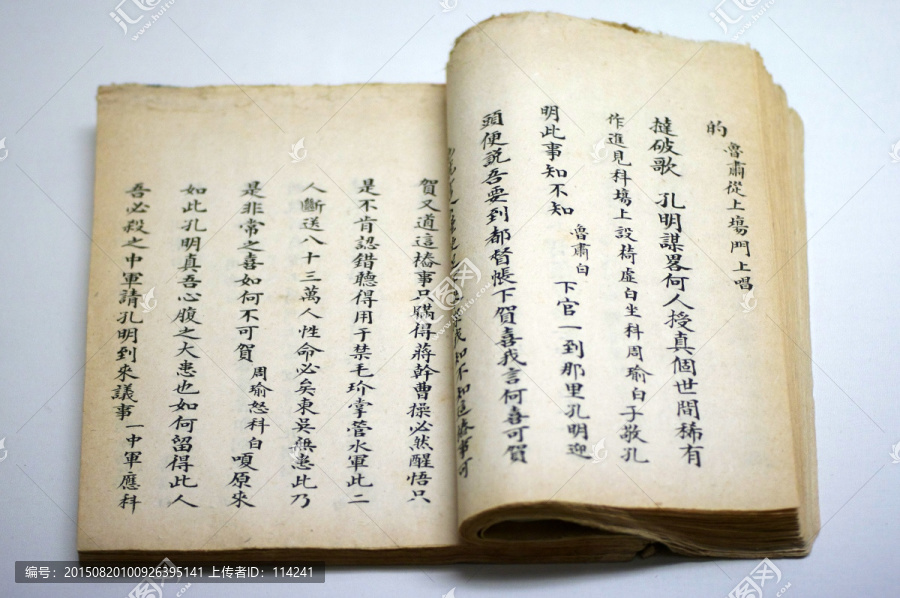 的 魯肅從上塲門上唱
撻破歌 孔明謀畧何人授真個世間稀有
作進見科塲上設椅虛白坐科周瑜白子敬孔
明此事知不知 魯肅白下官一到那里孔明迎
頭便説吾要到都督帳下賀喜我言何喜可賀
知不知這樁事可
賀又道這樁事只瞞得蔣幹曹操必然醒悟只
是不肯認錯聽得用于禁毛玠掌管水軍此二
人斷送八十三萬人性命必矣東吳無患此乃
是非常之喜如何不可賀 周瑜怒科白嗄原來
如此孔明真吾心腹之大患也如何留得此人
吾必殺之中軍請孔明到來議事 一中軍應科
编号：20150820100926395141 上传者ID：114241
汇图网